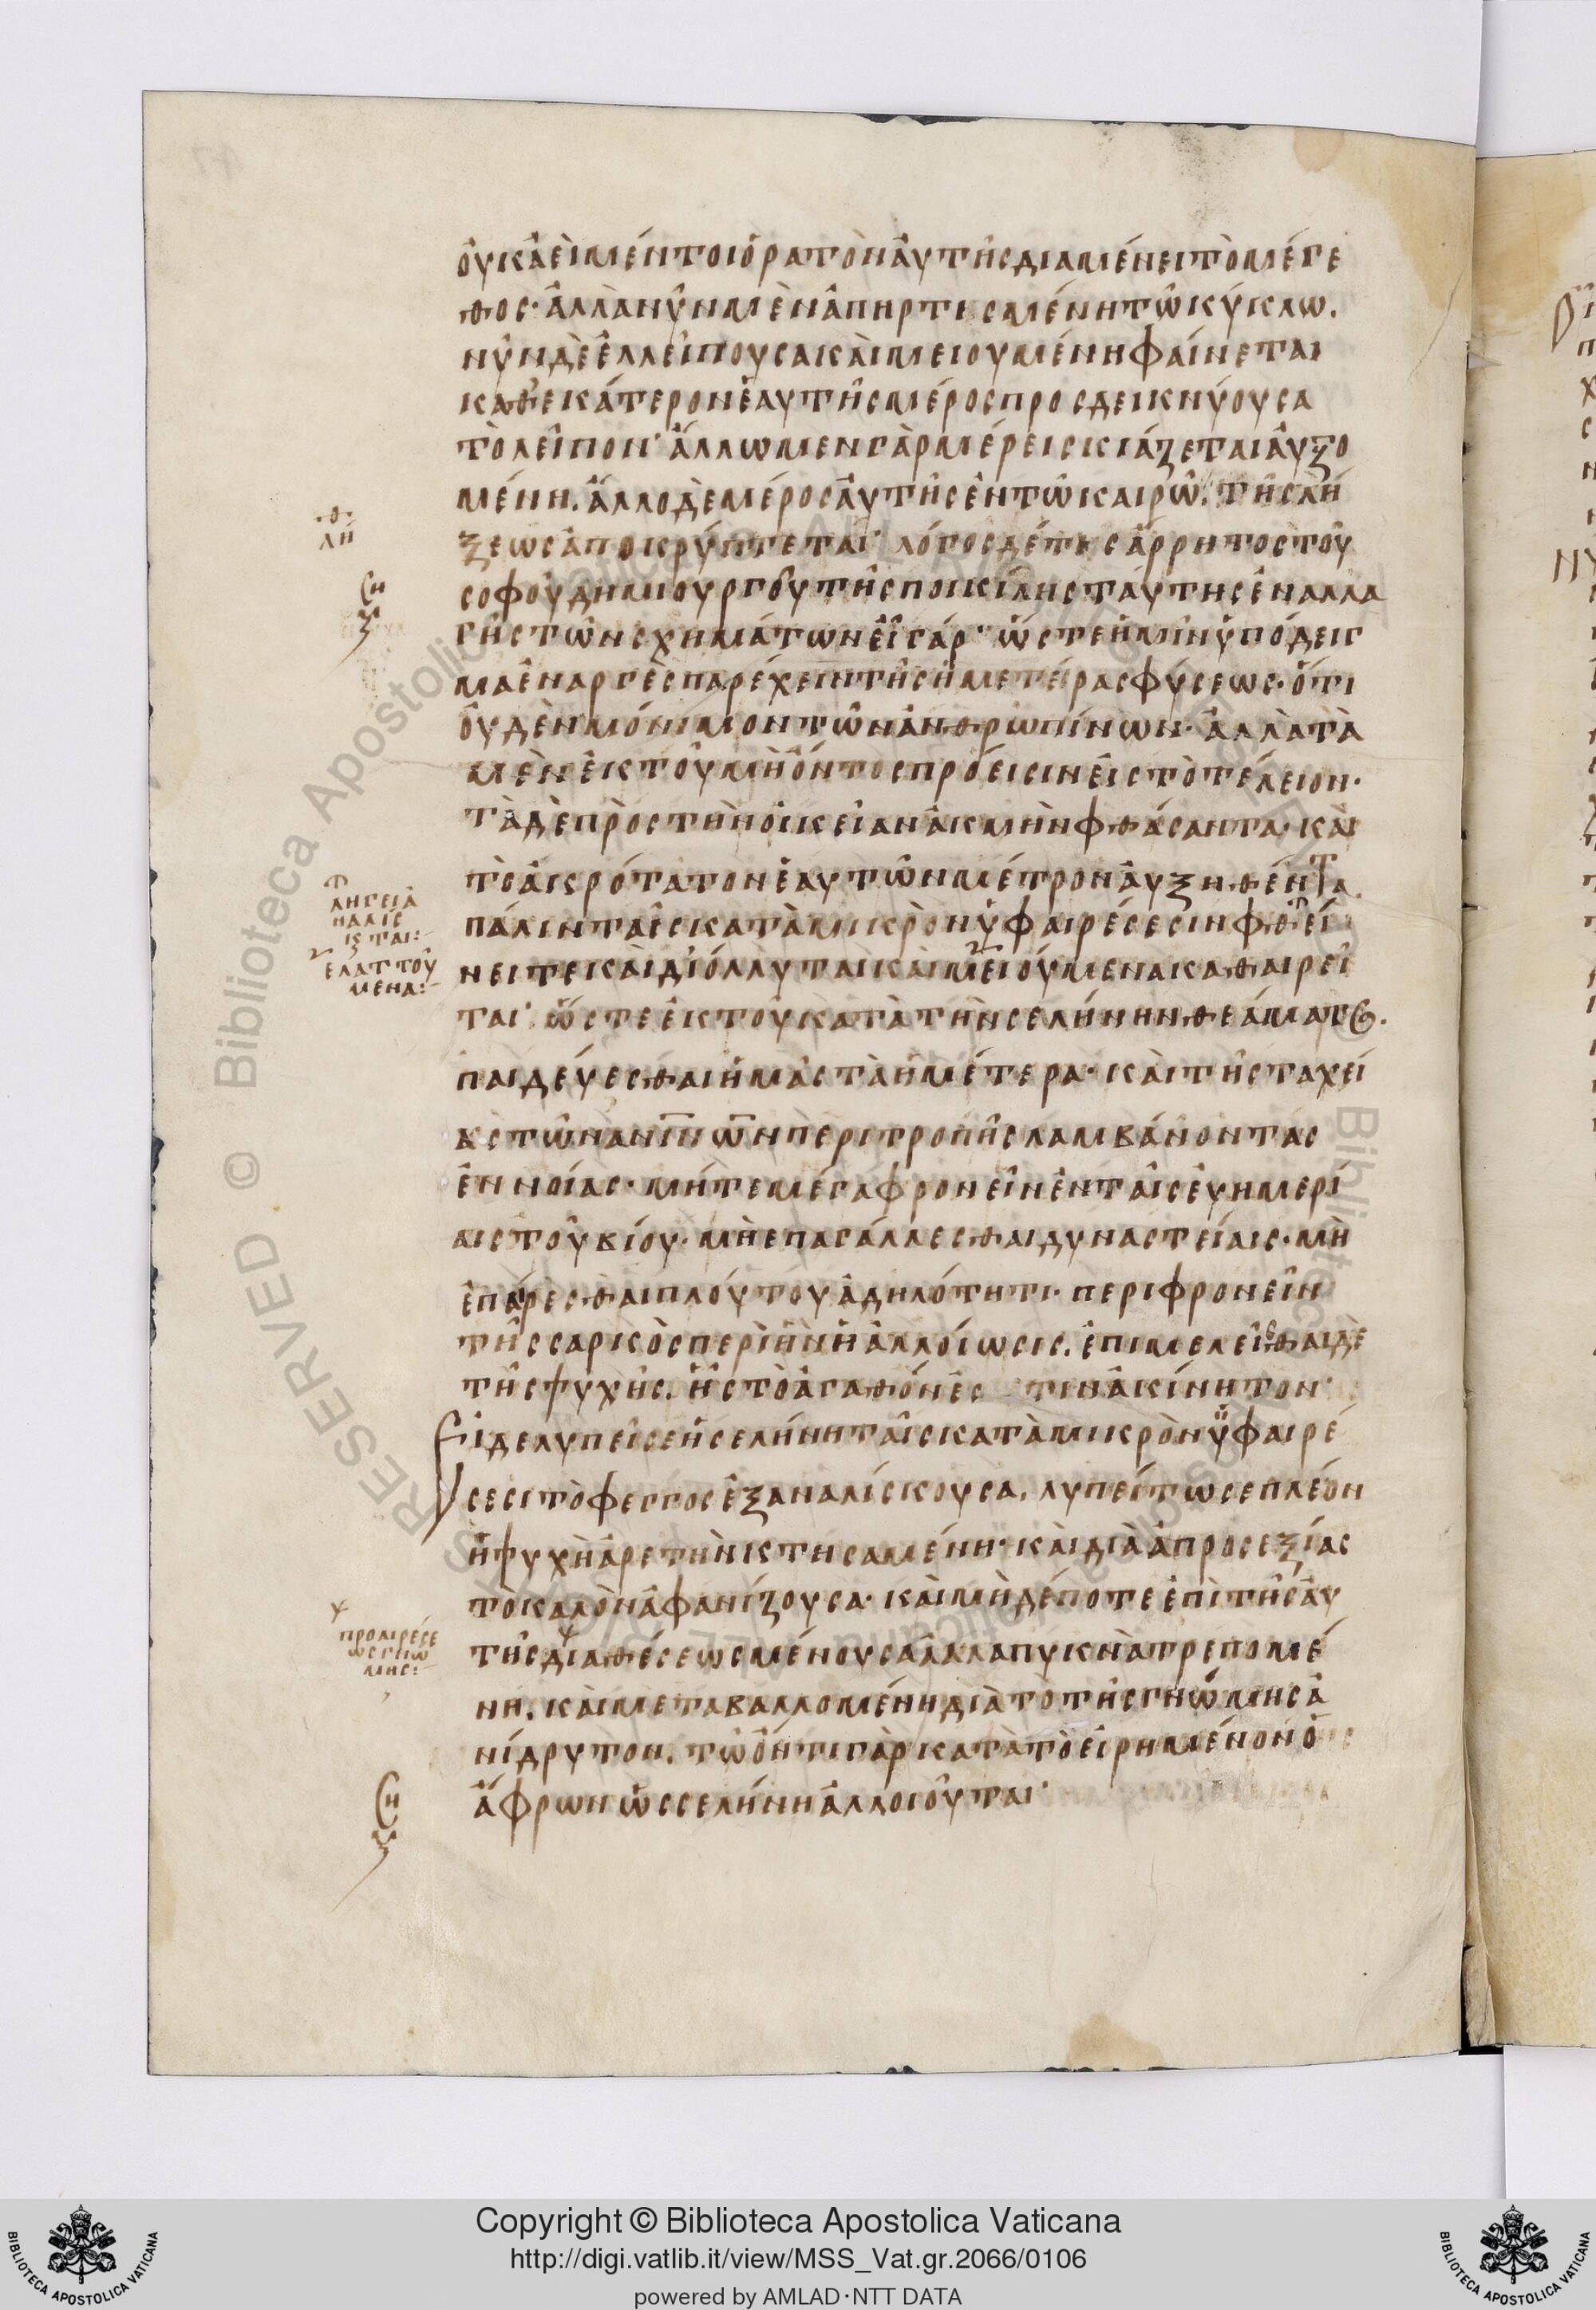 ὀυκἀεὶμέντοιὁρατὸναὐτῆςδιαμένειτὸμέγε
θος· ἀλλὰνῦνμὲνἀπηρτισμένητῶκύκλω.
νῦνδὲἐλλείπουσακαὶμειουμένηφαίνεται
καθ᾽εκάτερονἑαυτῆςμέροςπροσδεικνύουσα
τὸλεῖπον· ἄλλωμενγὰρμέρεισκιάζεταιἀυξο
μένη. ἄλλοδὲμέροςἀυτῆςἐντῶκαιρῶ. τῆςλή
ξεωςἀποκρύπτεται· λόγοςδέτιςἄρρητοςτοῦ
σοφοῦδημιουργοῦτῆςποικίληςτάυτηςἐναλλα
γῆςτῶνσχημάτωνεῖγάρ· ὥστεἡμῖνὑπόδειγ
μαἐναργὲςπαρέχειντῆςἡμετέραςφύσεως· ὅτι
ὀυδὲνμόνιμοντῶνἀνθρωπίνων· ἀλλὰτὰ
μὲνἐκτοῦμὴὄντοςπρόεισινεἰςτὸτέλειον·
τὰδὲπρὸςτὴνὀικείανἀκμὴνφθάσαντα· καὶ
τὸἀκρότατονἑαυτῶνμέτρονἀυξηθέντα.
πάλινταῖςκατὰμικρὸνὑφαιρέσεσινφθεί
νειτεκαὶδιόλλυταικαὶμειούμενακαθαιρεῖ
ται· ὥστεἐκτοῦκατὰτὴνσελήνηνθεάματος.
παιδεύεσθαιἡμᾶςτὰἡμέτερα· καὶτῆςταχεί
αςτῶνανινωνπεριτροπῆςλαμβάνοντας
ἐννοίας· μήτεμέγαφρονεῖνἐνταῖςἐυημερί
αιςτοῦβίου· μὴεπαγάλλεσθαιδυναστείαις· μὴ
ἐπαίρεσθαιπλούτουἀδηλότητι· περιφρονεῖν
τῆςσαρκὸςπερὶἣνἡἀλλοίωσις. ἐπιμελεῖσθαιδὲ
τῆςψυχῆς. ἧςτὸἀγαθόνἐς τινἀκίνητον·
Ειδελυπεῖσεἡσελήνηταῖςκατὰμικρὸνὑφαιρέ
σεσιτὸφεγγοςἐξαναλίσκουσα, λυπείτωσεπλέον
ἡψυχὴἀρετὴνκτησαμένη· καὶδιὰἀπροσεξίας
τὸκαλὸνἀφανίζουσα· καὶμὴδέποτεἐπὶτῆςἀυ
τῆςδιαθέσεωςμένουσαἀλλαπυκνὰτρεπομέ
νη. καὶμεταβαλλομένηδιὰτὸτῆςγνώμηςἀ
νίδρυτον. τῶὄντιγὰρκατὰτὸεἰρημένονὁ
ἄφρωνὡςσελήνηἀλλοιοῦται·
·θ·
λή
ση
προαιρέσε
ωςγνώ
μης:
ἐλαττού
μενα:
ση